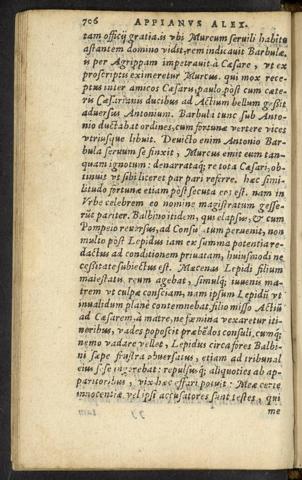 706 APPIANVS ALEX.
tam officij gratia. is vbi Murcum seruili habitu
astantem domino vidit, rem indicauit Barbulæ,
is per Agrippam impetrauit à Cæsare, vt ex
proscriptis eximeretur Murcus. qui mox rece-
ptus inter amicos Cæsaris, paulo pòst cum cæte-
ris Cæsarianis ducibus ad Actium bellum gessit
aduersus Antonium. Barbula tunc sub Anto-
nio ductabat ordines, cum fortunæ vertere vices
vtriusque libuit. Deuicto enim Antonio Bar-
bula seruum se finxit, Murcus emit eum tan-
quam ignotum: denarrataq́; re tota Cæsari, ob-
tinuit vt sibi liceret par pari referre. hæc simi-
litudo fortunæ etiam pòst secuta eos est. nam in
Vrbe celebrem eo nomine magistratum gesse-
runt pariter. Balbino itidem, qui elapsus, & cum
Pompeio reuersus, ad Consulatum peruenit, non
multo pòst Lepidus iam ex summa potentia re-
dactus ad conditionem priuatam, huiusmodi ne
cessitate subiectus est. Mæcenas Lepidi filium
maiestatis reum agebat, simulq́; iuuenis ma-
trem vt culpæ consciam, nam ipsum Lepidū vt
inualidum planè contemnebat. filio misso Actiū
ad Cæsarem, à matre, ne fœmina vexaretur iti-
neribus, vades poposcit præbēdos consuli. cumq́;
nemo vadare vellet, Lepidus circa fores Balbi-
ni sæpe frustra obuersatus, etiam ad tribunal
eius sese ingerebat: repulsusq́; aliquoties ab ap-
paritoribus, vix hæc effari potuit: Meæ certe
innocentiæ vel ipsi accusatores sunt testes, qui
me